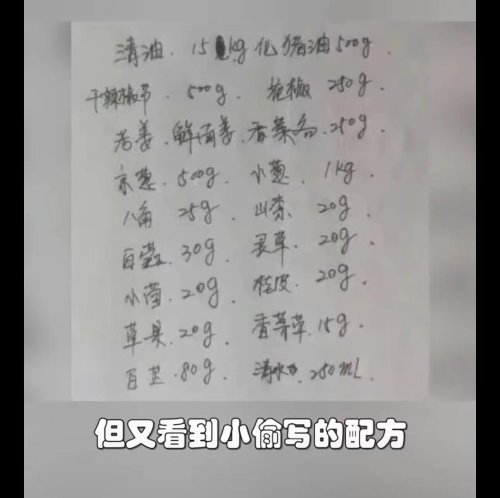 清油. 15 kg 化猪油500g.
干辣椒节. 500g. 花椒 250g.
老姜. 鲜南姜. 香菜各. 250g.
京葱. 500g. 小葱. 1kg.
八角 25g. 山柰 20g.
白蔻. 30g. 灵草. 20g.
小茴. 20g. 桂皮. 20g.
草果. 20g. 香茅草. 15g.
白芷. 80g. 清水 250mL.
但又看到小偷写的配方